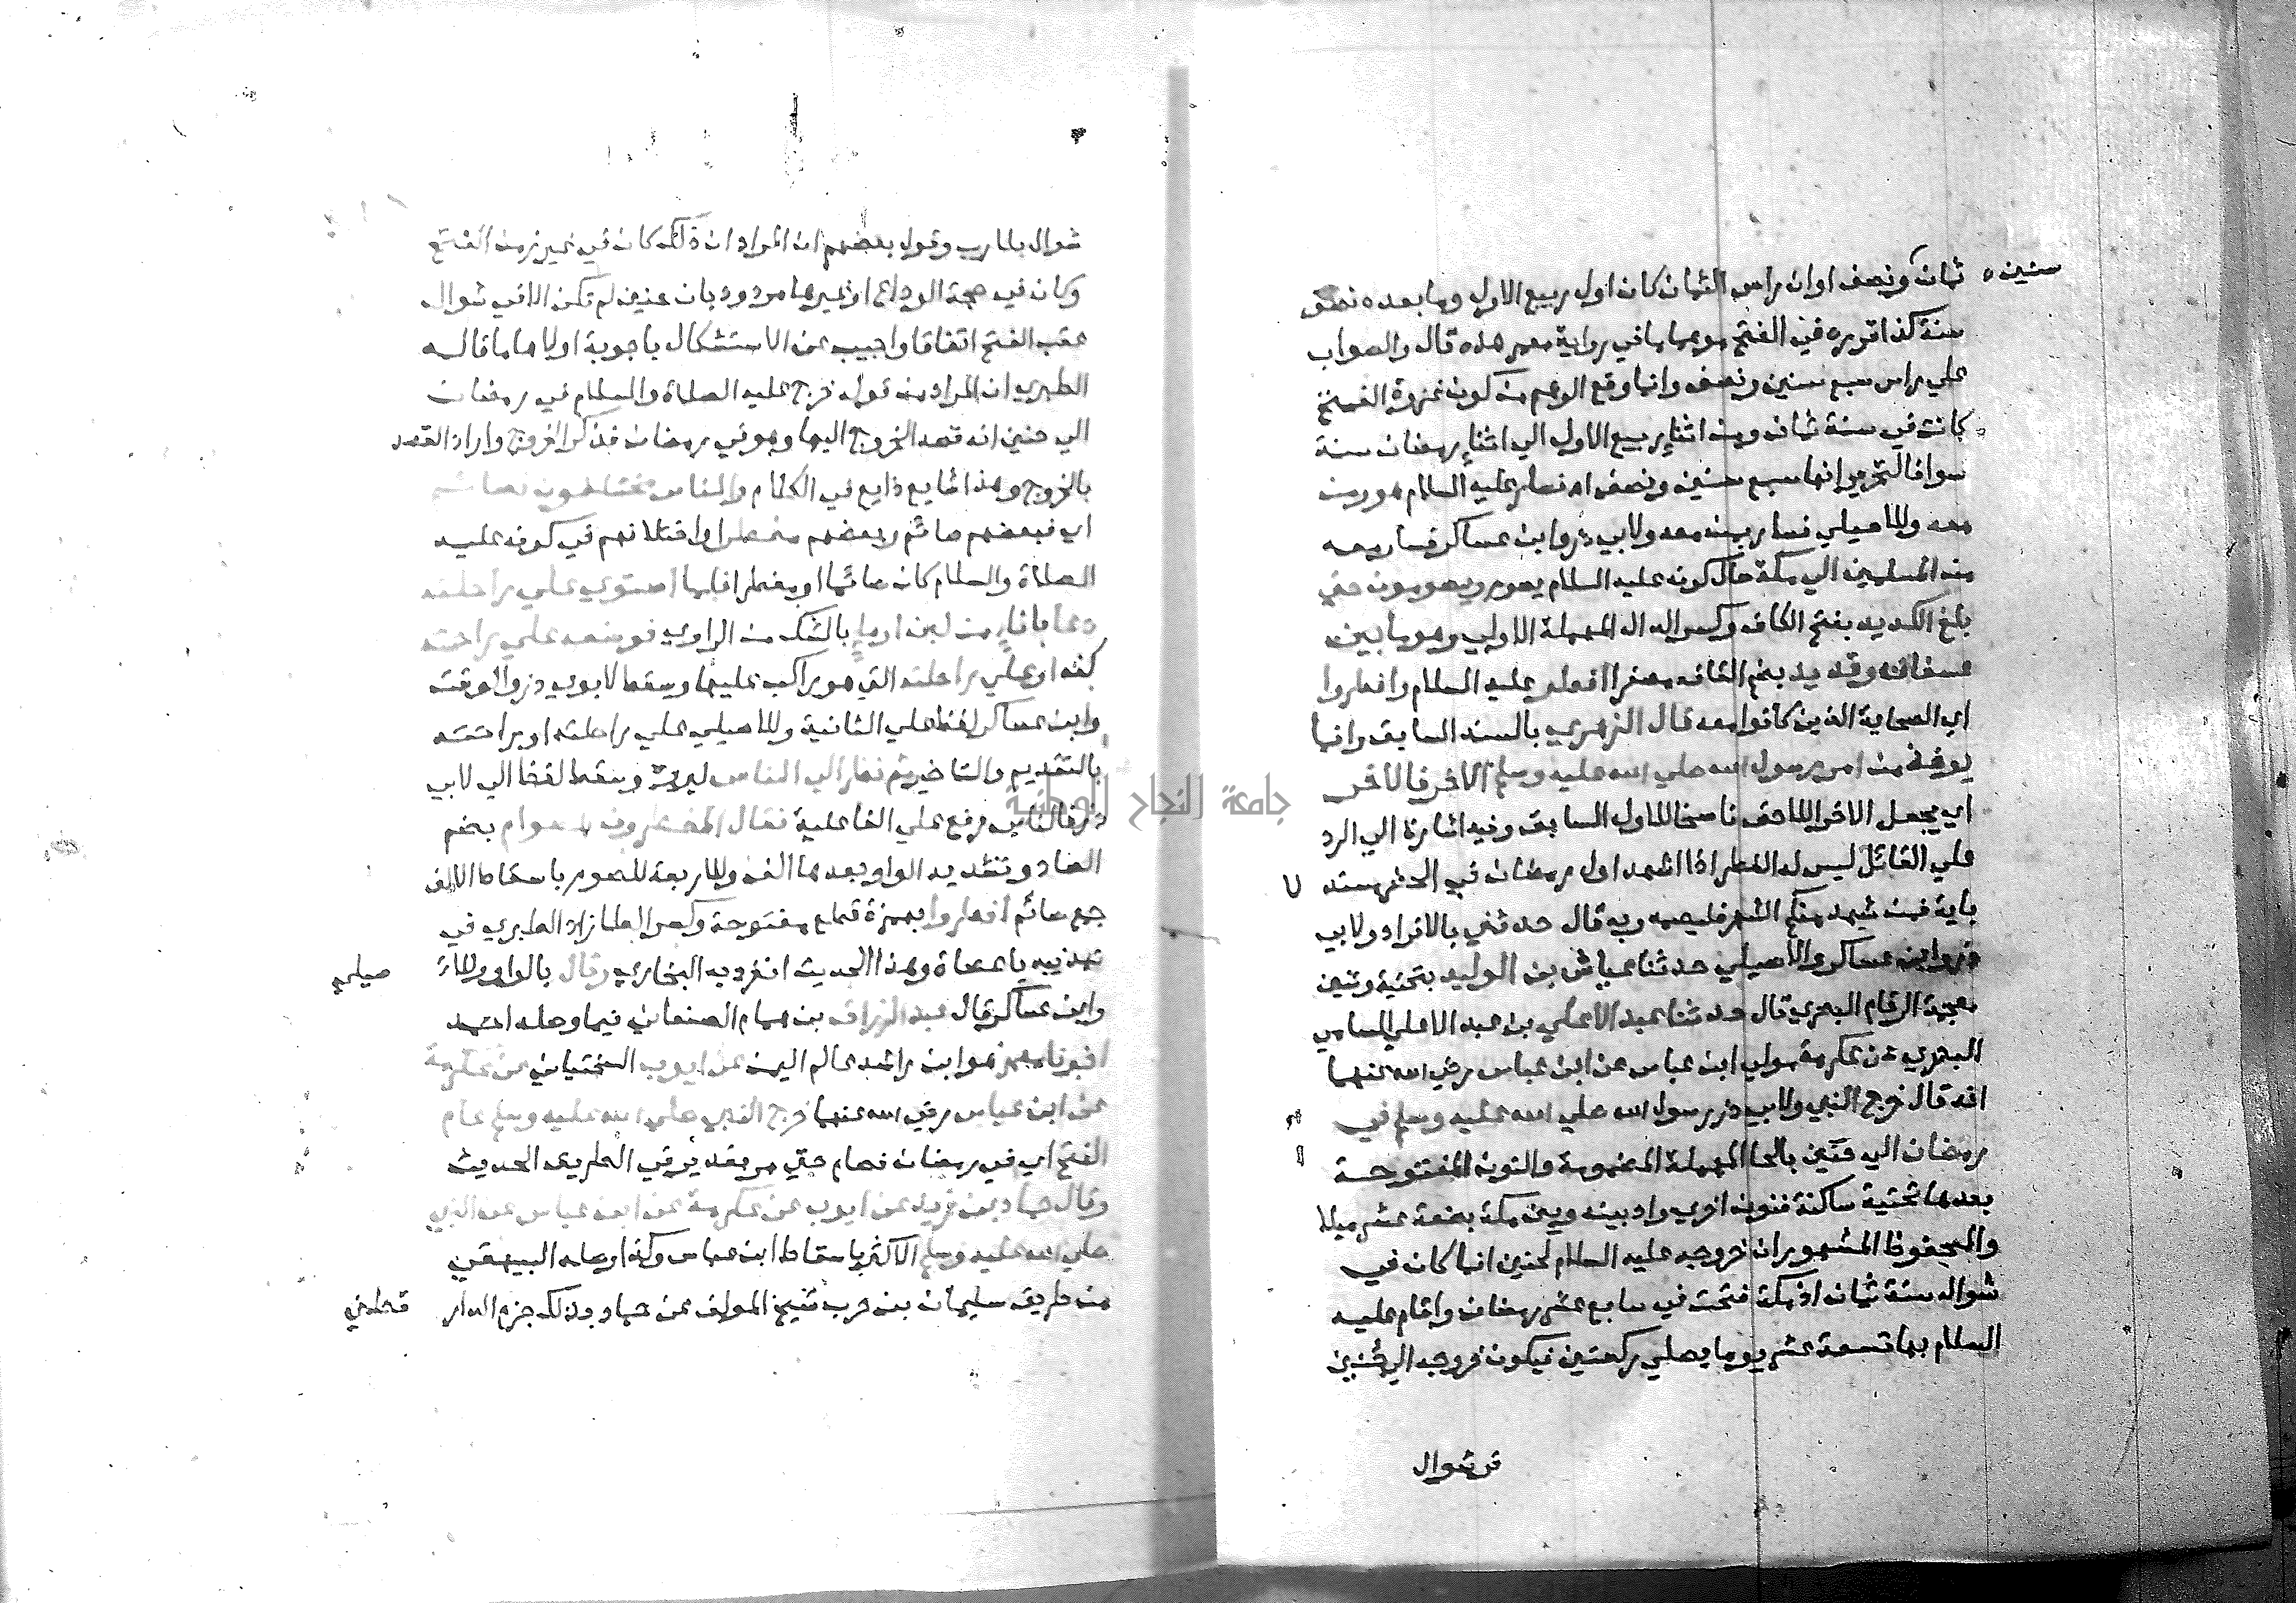 سنين ثمان ونصف او ان راس الثمان كان اول ربيع الاول وما بعده نصف
سنة كذا قرره في الفتح موجها ما في رواية معمر هذه قال والصواب
علي راس سبع سنين ونصف وانما وقع الوهم من كون غزوة الفتح
كانت في سنة ثمان ومن اثناء ربيع الاول الي اثناء رمضان سنة
سوا فالتحرير انها سبع سنين ونصف اه فسار عليه السلام هو ومن
معه وللاصيلي فسار بمن معه ولابي ذر وابن عساكر فسار معه
من المسلمين الي مكة حال كونه عليه السلام يصوم ويصومون حتي
بلغ الكديد بفتح الكاف وكسر الدال المهملة الاولي وهو ما بين
عسفان وقديد بضم القاف مصغرا افطر عليه السلام وافطروا
اي الصحابة الذين كانوا معه قال الزهري بالسند السابق وانما
يوخذ من امر رسول الله صلي الله عليه وسلم الاخر فالاخر
اي يجعل الاخر اللاحق ناسخا للاول السابق وفيه اشارة الي الرد
علي القائل ليس له الفطر اذا شهد اول رمضان في الحضر مستد لا
باية فمن شهد منكم الشهر فليصمه وبه قال حدثني بالافراد ولابي
ذر وابن عساكر والاصيلي حدثنا عياش بن الوليد بتحتية وشين
معجمة الرقام البصري قال حدثنا عبد الاعلي بن عبد الاعلي السامي
البصري عن عكرمة مولي ابن عباس عن ابن عباس رضي الله عنهما
انه قال خرج النبي ولابي ذر رسول الله صلي الله عليه وسلم في
رمضان الي حنين بالحا المهملة المضمومة والنون المفتوحة
بعدها تحتية ساكنة فنون اخري واد بينه وبين مكة بضعة عشر ميلا
والمحفوظ المشهور ان خروجه عليه السلام لحنين انما كان في
شوال سنة ثمان اذ مكة فتحت في سابع عشر رمضان واقام عليه
السلام بها تسعة عشر يوما يصلي ركعتين فيكون خروجه الي حنين
شوال
شوال بلا ريب وقول بعضهم ان المراد ان ذلك كان في غير زمن الفتح
وكان في حجة الوداع او غيرها مردود بان حنين لم تكن الا في شوال
عقب الفتح اتفاقا واجيب عن الاستشكال باجوبة اولاها ما قاله
الطبري ان المراد من قوله خرج عليه الصلاة والسلام في رمضان
الي حنين انه قصد الخروج اليها وهو في رمضان فذكر الخروج واراد القصد
بالخروج وهذا شايع ذايع في الكلام والناس مختلفون فصائم
اي فبعضهم صائم وبعضهم مفطر واختلافهم في كونه عليه
الصلاة والسلام كان صائما او مفطرا فلما استوي علي راحلته
دعا باناء من لبن او ماء بالشك من الراوي فوضعه علي راحته
كفه او علي راحلته التي هو راكب عليها وسقط لابوي ذر والوقت
وابن عساكر لفظ علي الثانية وللاصيلي علي راحلته او راحته
بالتقديم والتاخير ثم نظر الي الناس ليروه وسقط لفظ الي لابي
ذر فالناس رفع علي الفاعلية فقال المفطرون للصوام بضم
الصاد وتشديد الواو بعدها الف وللاربعة للصوم باسقاط الالف
جمع صائم افطروا بهمزة قطع مفتوحة وكسر الطا زاد الطبري في
تهذيبه يا عصاة وهذا الحديث انفرد به البخاري وقال بالواو وللا صيلي
وابن عساكر قال عبد الرزاق بن همام الصنعاني فيما وصله احمد
اخبرنا معمر هو ابن راشد عالم اليمن عن ايوب السختياني عن عكرمة
عن ابن عباس رضي الله عنهما خرج النبي صلي الله عليه وسلم عام
الفتح اي في رمضان فصام حتي مر بغدير في الطريق الحديث
وقال حماد بن زيد عن ايوب عن عكرمة عن ابن عباس عن النبي
صلي الله عليه وسلم الاكثر باسقاط ابن عباس وكذا وصله البيهقي
من طريق سليمان بن حرب شيخ المولف عن حماد وبذلك جزم الدار قطني
جامعة النجاح الوطنية